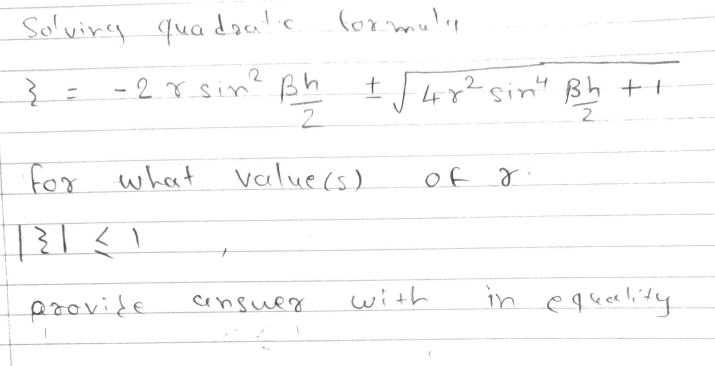 Solving quadratic formula
ξ = -2 r sin² βh/2 ± √4r² sin⁴ βh/2 + 1
for what value(s) of r:
|ξ| ≤ 1 ,
provide answer with in equality